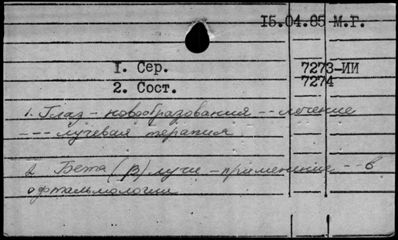 15.04.85 М.Г.
1. Сер. 7273-ИИ
2. Сост. 7274
1. Глаз - новообразования -- лечение
--- лучевая терапия
2. Бета (β) лучи - применение -- в
офтальмологии